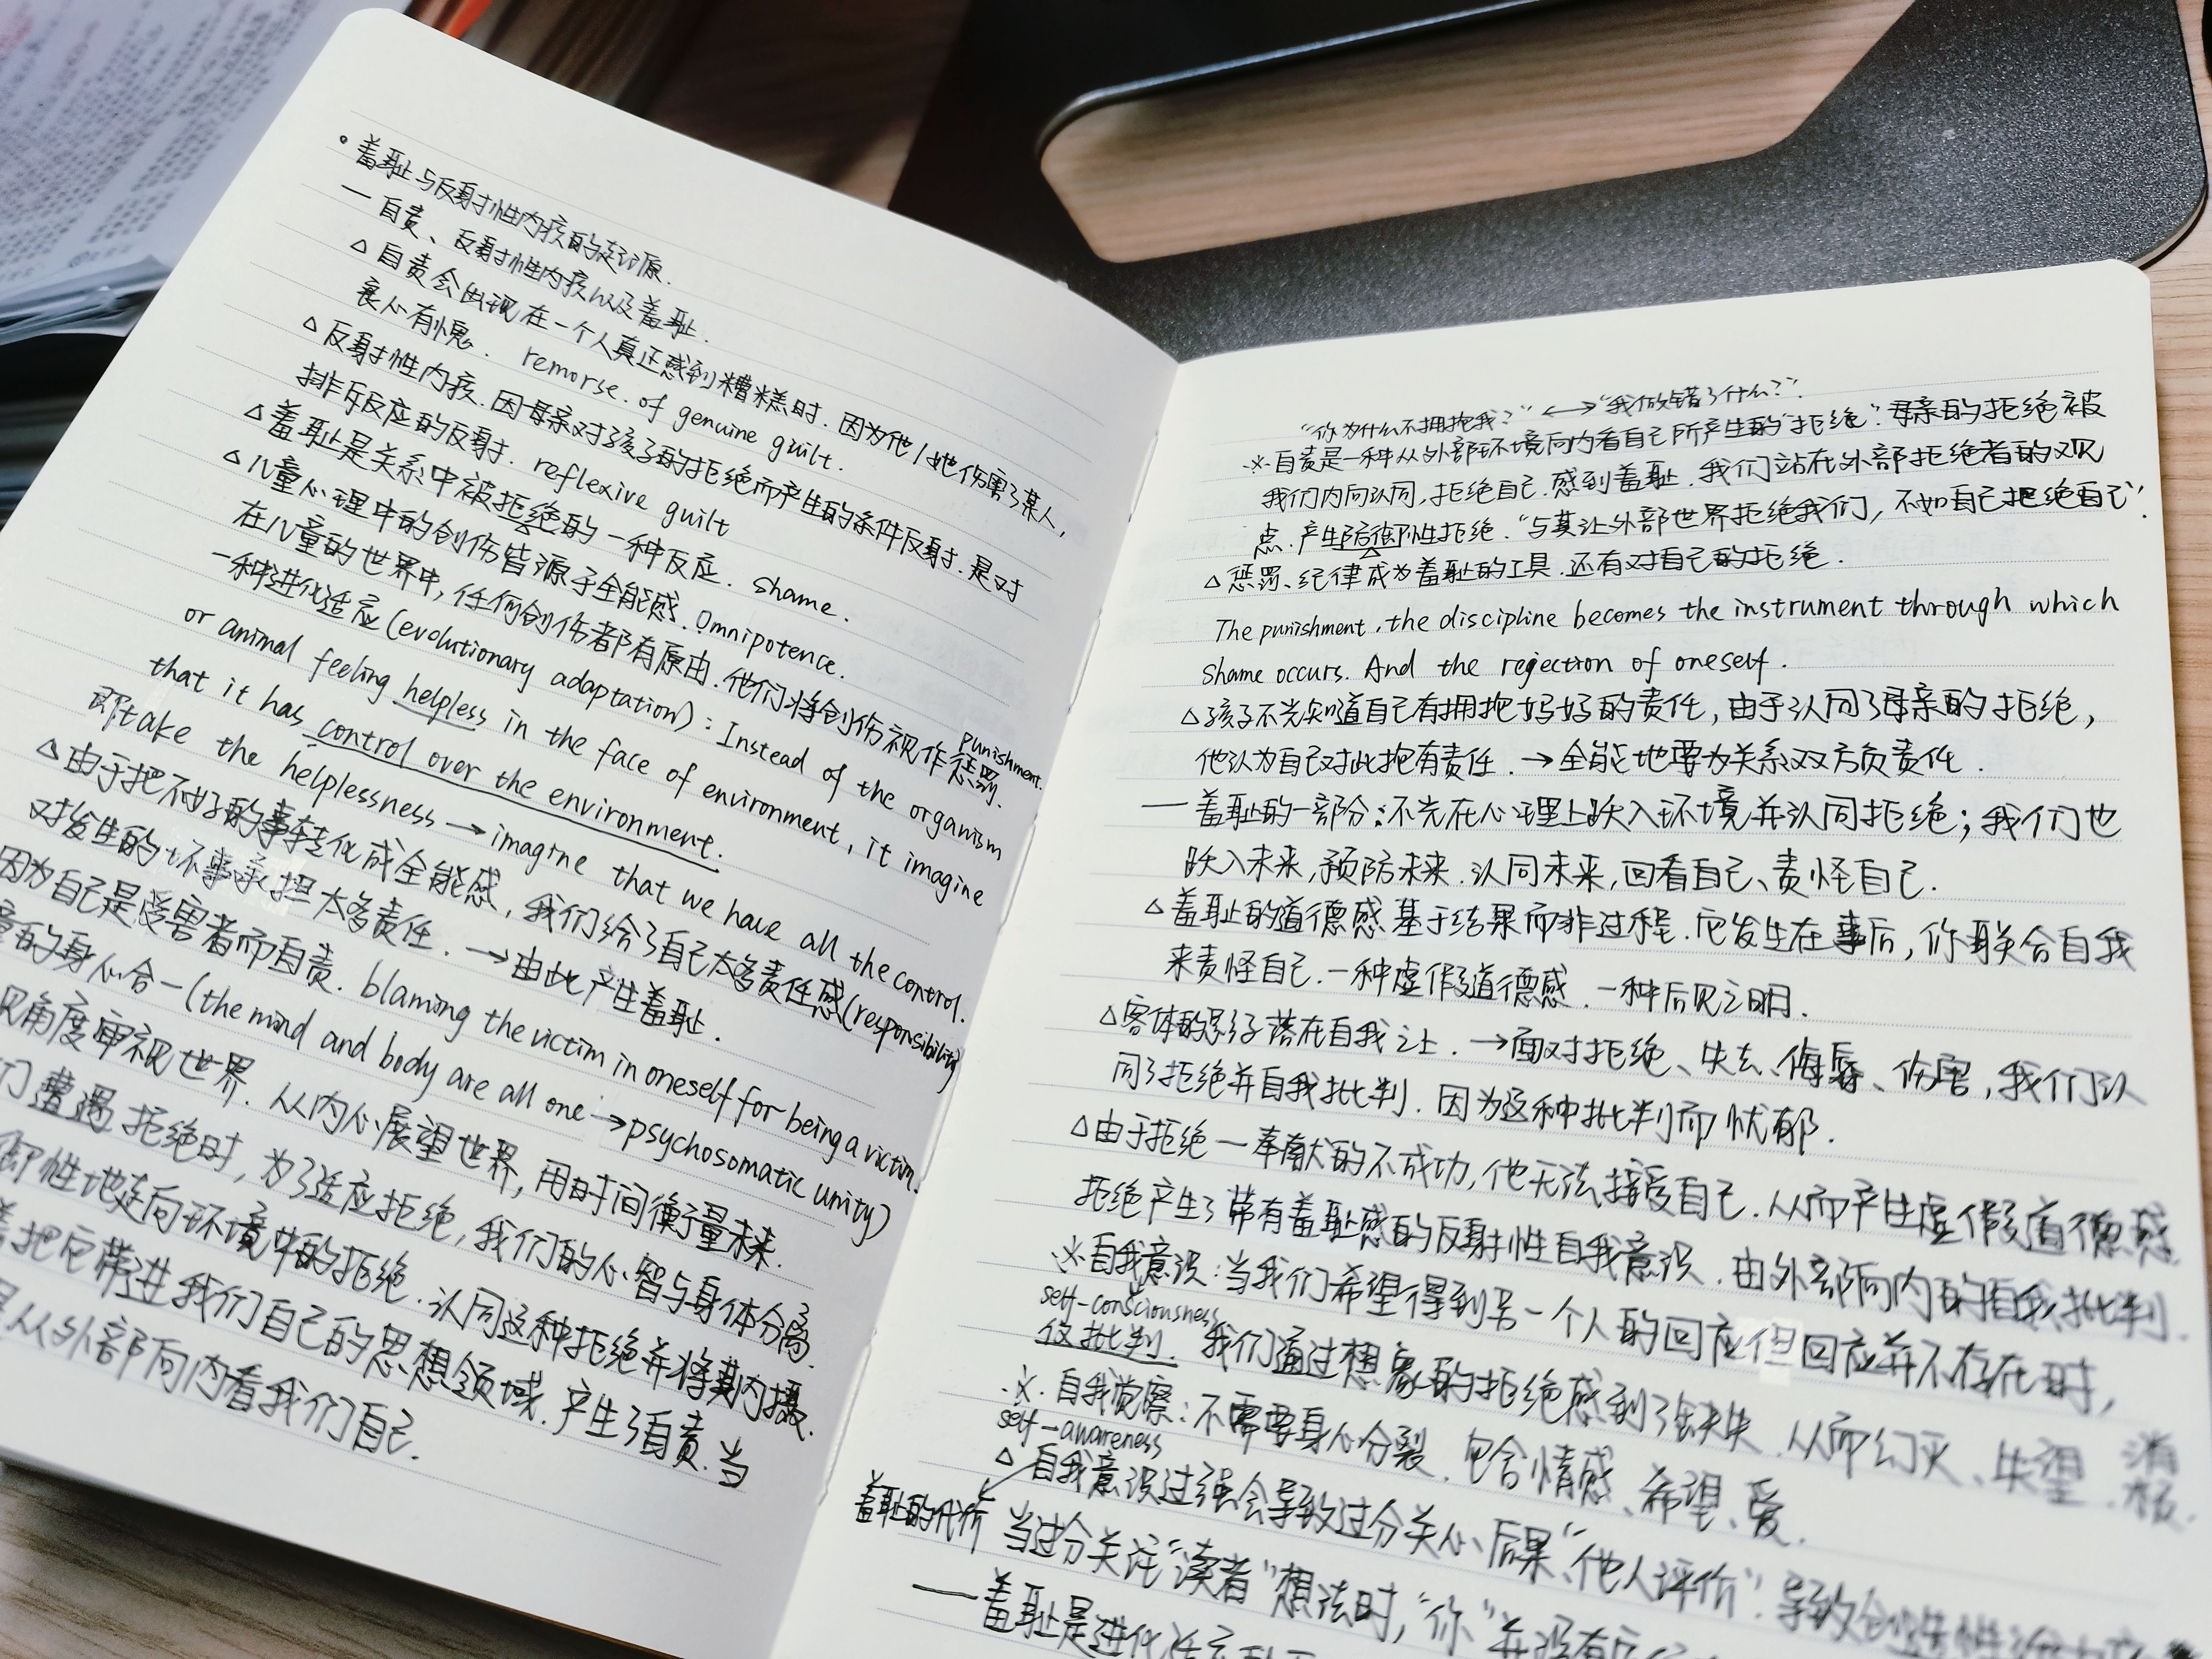 。羞耻与反射性内疚的起源.
一自责、反射性内疚以及羞耻.
△自责会出现在一个人真正感到糟糕时.因为他/她伤害了某人,
衷心有愧. remorse. of genuine guilt.
△反射性内疚.因母亲对孩子的拒绝而产生的条件反射.是对
排斥反应的反射. reflexive guilt
△羞耻是关系中被拒绝的一种反应. shame.
△儿童心理中的创伤皆源于全能感. Omnipotence.
在儿童的世界中,任何创伤都有原由.他们将创伤视作惩罚.
punishment.
一种进化适应(evolutionary adaptation): Instead of the organism
or animal feeling helpless in the face of environment, it imagine
that it has control over the environment.
即take the helplessness → imagine that we have all the control.
△由于把不好的事转化成全能感,我们给了自己太多责任感(responsibility)
对发生的坏事承担太多责任.→由此产生羞耻.
因为自己是受害者而自责. blaming the victim in oneself for being a victim.
的身心合一(the mind and body are all one→psychosomatic unity)
角度审视世界.从内心展望世界,用时间衡量未来.
们遭遇拒绝时,为了适应拒绝,我们的心智与身体分离.
性地走向环境中的拒绝.认同这种拒绝并将其内摄.
把它带进我们自己的思想领域.产生了自责.当
从外部向内看我们自己.
“你为什么不拥抱我?”←→“我做错了什么?”
※自责是一种从外部环境向内看自己所产生的“拒绝”.母亲的拒绝被
我们内向认同,拒绝自己.感到羞耻.我们站在外部拒绝者的观
点.产生防御性拒绝.“与其让外部世界拒绝我们,不如自己拒绝自己”.
△惩罚、纪律成为羞耻的工具.还有对自己的拒绝.
The punishment, the discipline becomes the instrument through which
shame occurs. And the rejection of oneself.
△孩子不光知道自己有拥抱妈妈的责任,由于认同了母亲的拒绝,
他认为自己对此抱有责任.→全能地要为关系双方负责任.
一羞耻的一部分:不光在心理上跃入环境并认同拒绝;我们也
跃入未来,预防未来.认同未来,回看自己、责怪自己.
△羞耻的道德感基于结果而非过程.它发生在事后,你联合自我
来责怪自己.一种虚假道德感.一种后见之明.
△客体的影子落在自我之上.→面对拒绝、失去、侮辱、伤害,我们认
同了拒绝并自我批判.因为这种批判而忧郁.
△由于拒绝一奉献的不成功,他无法接受自己.从而产生虚假道德感
拒绝产生了带有羞耻感的反射性自我意识.由外部向内的自我批判.
※自我意识:当我们希望得到另一个人的回应但回应并不存在时,
self-consciousness
批判.我们通过想象的拒绝感到了缺失.从而幻灭、失望.消极.
※.自我觉察:不需要身心分裂.包含情感、希望、爱.
self-awareness
△自我意识过强会导致过分关心“后果”、“他人评价”.导致创造性
羞耻的代价
当过分关注“读者”想法时,“你”并没有
——羞耻是进化适应